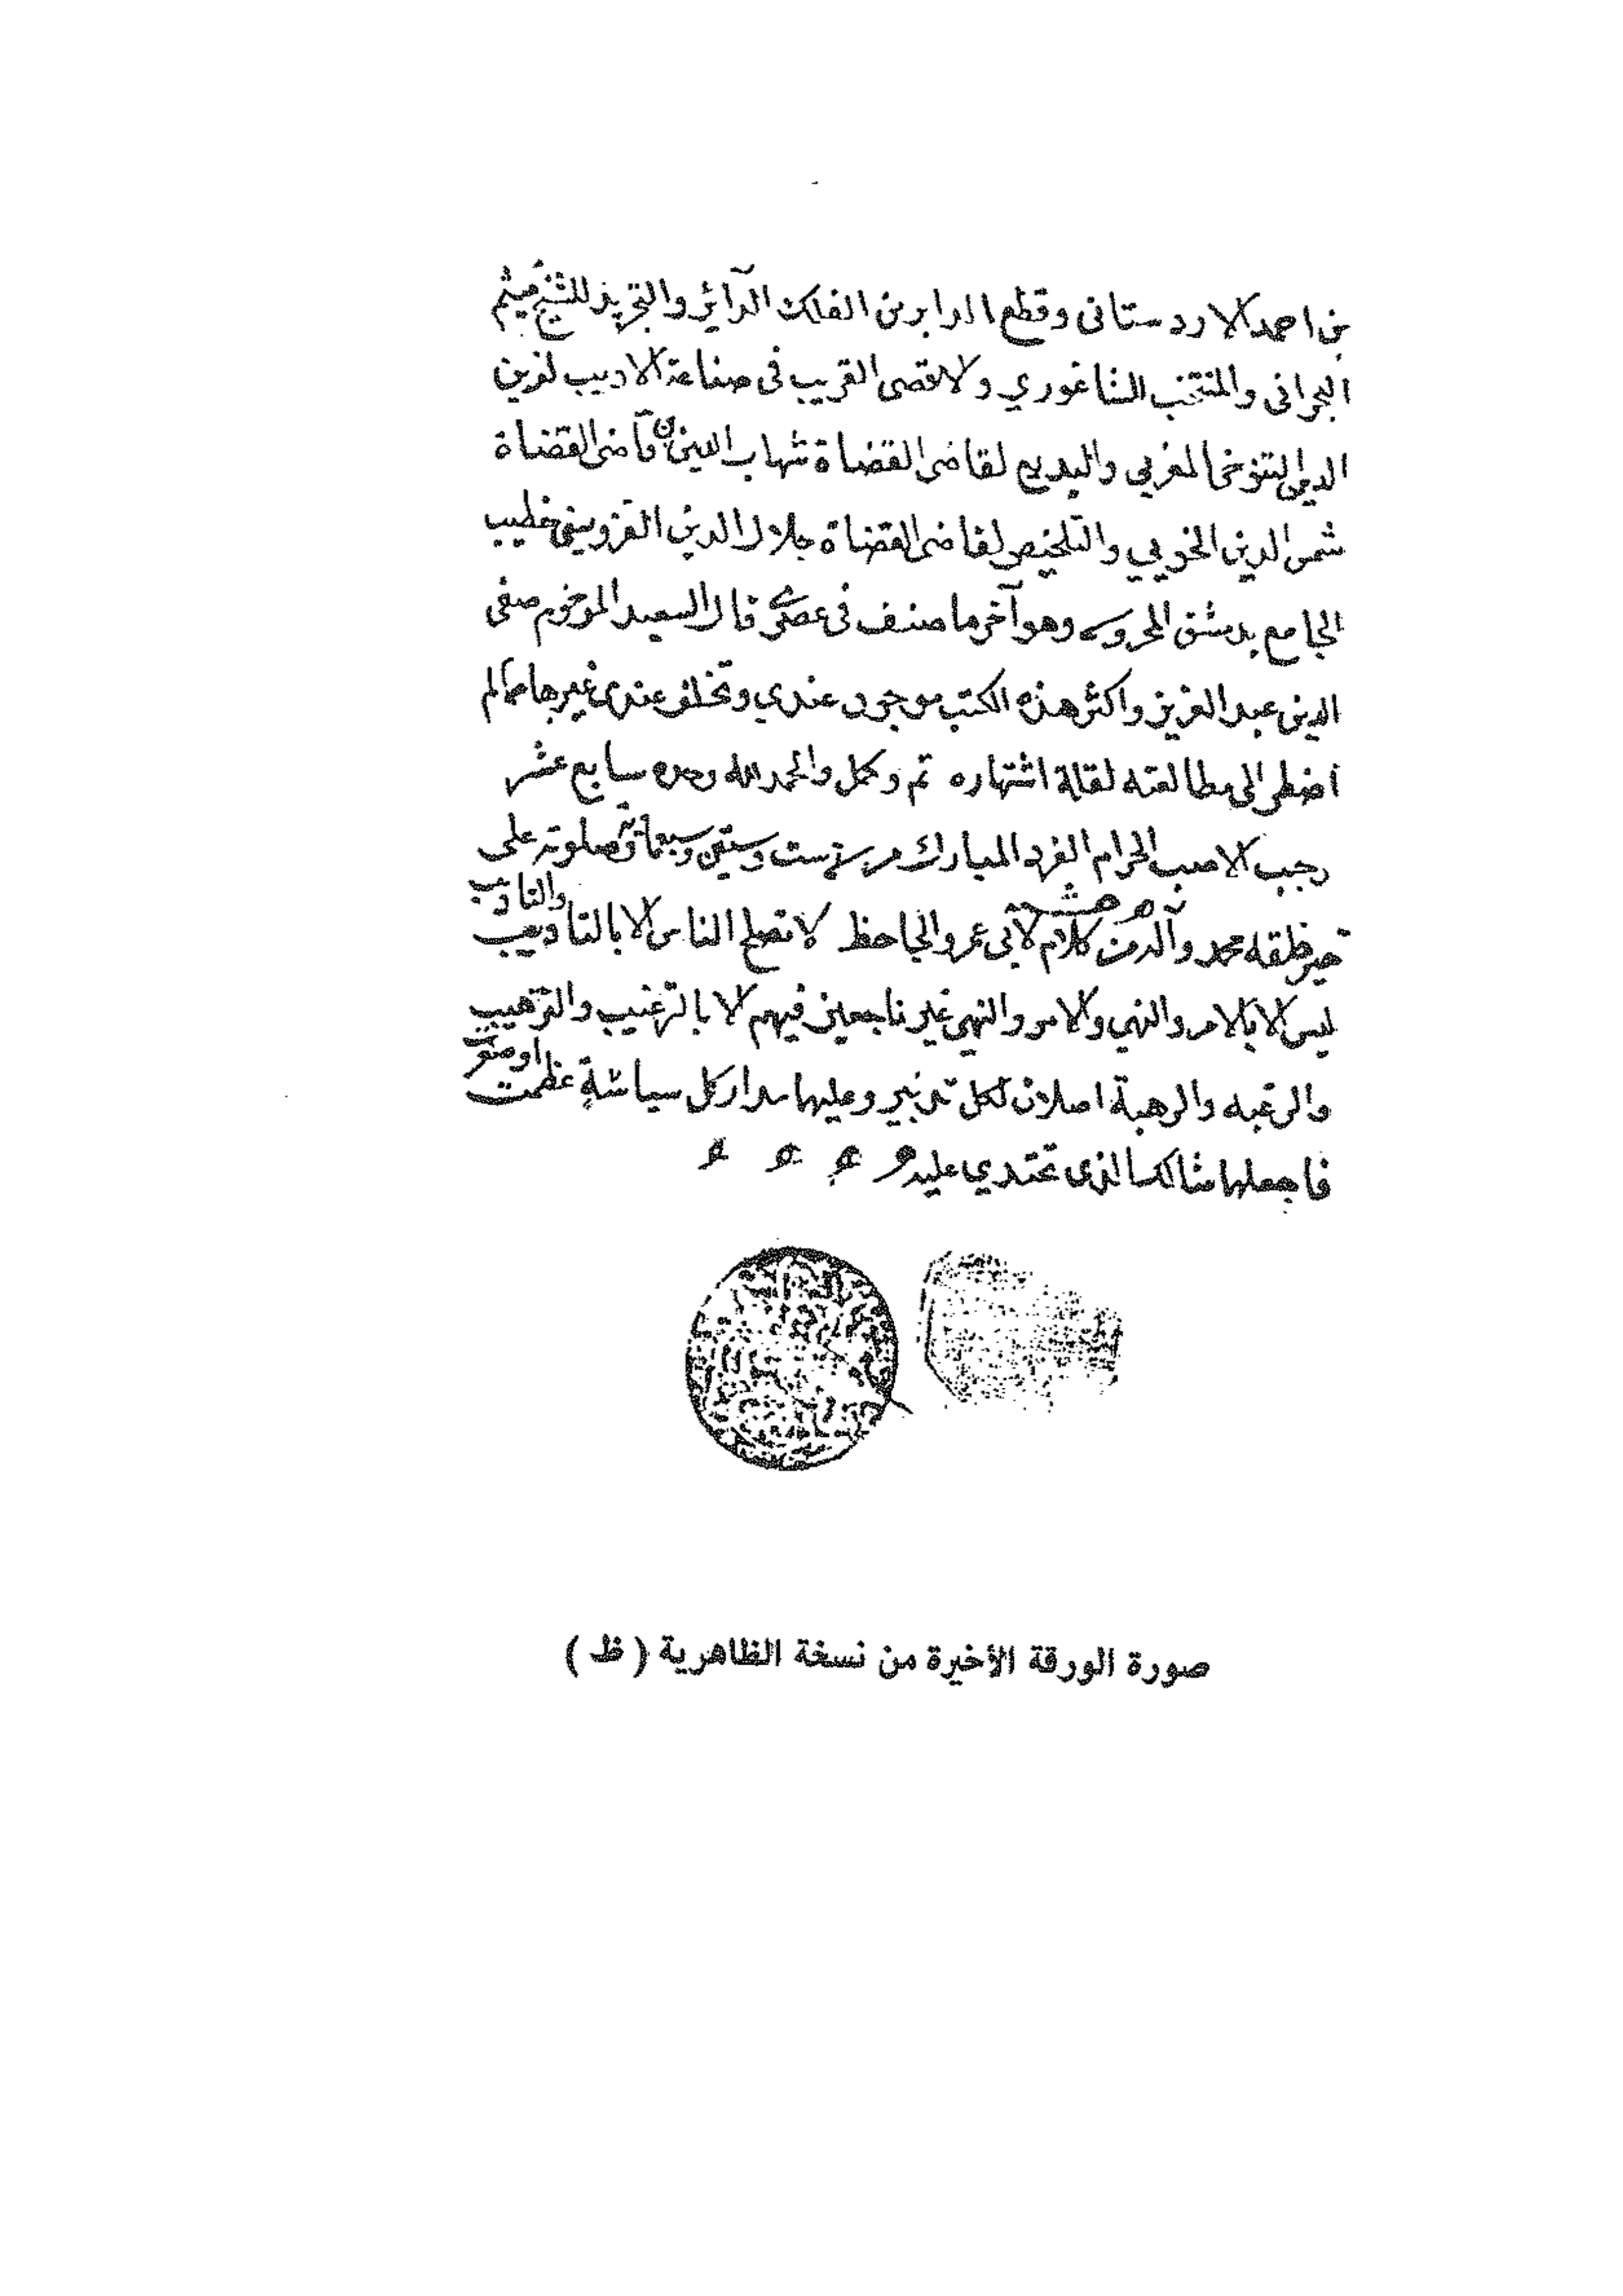 بن احمد الاردستانى وقطع الدابر من الفلك الدآئر والتجريد للشيخ ميثم
البحرانى والمنتخب الشاغوري والاقصى القريب فى صناعة الاديب لزين
الدين التنوخى المغربي والبديع لقاضى القضاة شهاب الدين بن قآضى القضاة
شمس الدين الخويي والتلخيص لقاضى القضاة جلال الدين القزوينى خطيب
الجامع بدمشق المحروسه وهو آخر ما صنف فى عصرى قال السعيد المرحوم صفى
الدين عبد العزيز واكثر هذه الكتب موجود عندي وتخلف عندى غيرها مما لم
اضطر الى مطالعته لقلة اشتهاره تم وكمل والحمد لله وحده سابع عشر
رجب الاصب الحرام الفرد المبارك من سنة ست وستين وسبعمائة وصلوته على
خير خلقه محمد وآله من كلام لابى عمرو الجاحظ لا تصلح الناس الا بالتاديب والتاديب
ليس الا بالامر والنهي والامر والنهي غير ناجعين فيهم الا بالترغيب والترهيب
والرغبه والرهبة اصلان لكل تدبير وعليها مدار كل سياسة عظمت او صغرت
فاجعلها مثالك الذى تحتدي عليه
صورة الورقة الأخيرة من نسخة الظاهرية ( ظ )